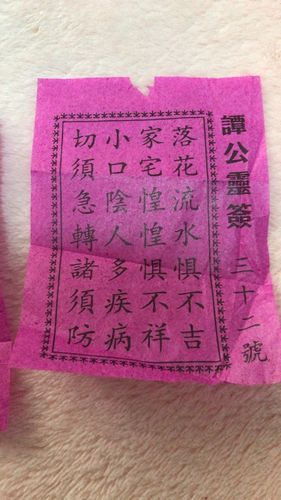 譚公靈簽 三十二號
落花流水惧不吉
家宅惶惶惧不祥
小口陰人多疾病
切須急轉諸須防